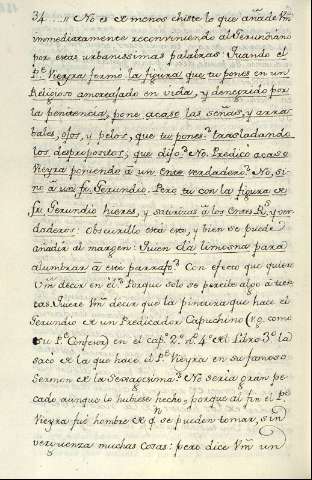 34...,, No es el menos chiste lo que añade Vm
immediatamente reconviniendo al Gerundiano
por estas urbanissimas palabras: Quando el
Pe. Vieyra formó la figura, que tu pones en un
Religioso amortajado en vida, y denegrido por
la penitencia, pone acaso las señas, y arra-
bales, ojos, y pelos, que tu pones trasladando
los despropositos, que dijo? No. Predicó acaso
Vieyra poniendo à un Ente verdadero? No, si-
nò à un fr. Gerundio. Pero tu con la figura de
fr. Gerundio hieres, y satirizas à los Entes Rs. y ver-
daderos: Obscurillo está esto, y bien se puede
añadir al margen: Quien dà limosna para
alumbrar à este parrafo? Con efeto que quiere
Vm decir en èl? Porque solo se percibe algo à tien-
tas. Quiere Vm decir que la pintura que hace el
Gerundio de un Predicador Capuchino (vg. como
su Pe. Confesor) en el cap. 2º. nº. 4º. del Libro 3º. la
sacó de la que hace el Pe. Vieyra en su famoso
Sermon de la Sexagesima? No seria gran pe-
cado aunque lo hubiese hecho, porque al fin el Pe.
Vieyra fué hombre de qn se pueden tomar, sin
verguenza muchas cosas: pero dice Vm un